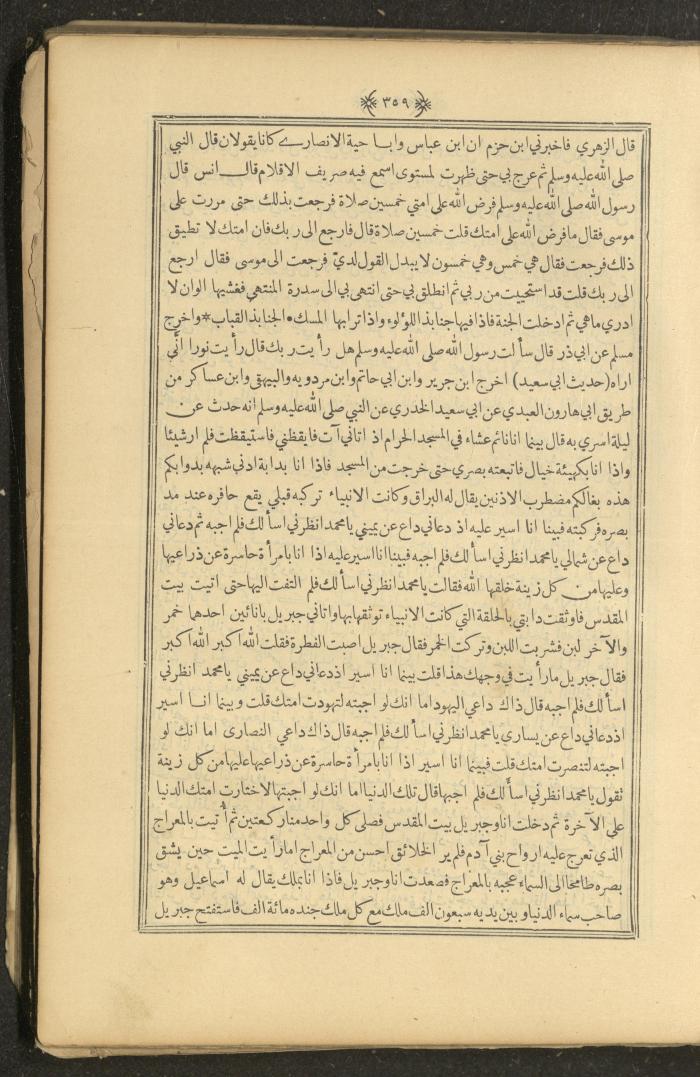 ٣٥٩
قال الزهري فاخبرني ابن حزم ان ابن عباس وابا حية الانصاري كانا يقولان قال النبي
صلى الله عليه وسلم ثم عرج بي حتى ظهرت لمستوى اسمع فيه صريف الاقلام قال انس قال
رسول الله صلى الله عليه وسلم فرض الله على امتي خمسين صلاة فرجعت بذلك حتى مررت على
موسى فقال ما فرض الله على امتك قلت خمسين صلاة قال فارجع الى ربك فان امتك لا تطيق
ذلك فرجعت فقال هي خمس وهي خمسون لا يبدل القول لديّ فرجعت الى موسى فقال ارجع
الى ربك قلت قد استحييت من ربي ثم انطلق بي حتى انتهى بي الى سدرة المنتهى فغشيها الوان لا
ادري ما هي ثم ادخلت الجنة فاذا فيها جنابذ اللؤلوء واذا ترابها المسك • الجنابذ القباب * واخرج
مسلم عن ابي ذر قال سألت رسول الله صلى الله عليه وسلم هل رأيت ربك قال رأيت نورا أنّي
اراه (حديث ابي سعيد) اخرج ابن جرير وابن ابي حاتم وابن مردويه والبيهقي وابن عساكر من
طريق ابي هارون العبدي عن ابي سعيد الخدري عن النبي صلى الله عليه وسلم انه حدث عن
ليلة اسري به قال بينما انا نائم عشاء في المسجد الحرام اذ اتاني آت فايقظني فاستيقظت فلم ار شيئا
واذا انا بكهيئة خيال فاتبعته بصري حتى خرجت من المسجد فاذا انا بدابة ادنى شبهه بدوابكم
هذه بغالكم مضطرب الاذنين يقال له البراق وكانت الانبياء تركبه قبلي يقع حافره عند مد
بصره فركبته فبينا انا اسير عليه اذ دعاني داع عن يميني يا محمد انظرني اسألك فلم اجبه ثم دعاني
داع عن شمالي يا محمد انظرني اسألك فلم اجبه فبينا انا اسير عليه اذا انا بامرأة حاسرة عن ذراعيها
وعليها من كل زينة خلقها الله فقالت يا محمد انظرني اسألك فلم التفت اليها حتى اتيت بيت
المقدس فاوثقت دابتي بالحلقة التي كانت الانبياء توثقها بها واتاني جبريل بانائين احدهما خمر
والآخر لبن فشربت اللبن وتركت الخمر فقال جبريل اصبت الفطرة فقلت الله اكبر الله اكبر
فقال جبريل ما رأيت في وجهك هذا قلت بينما انا اسير اذ دعاني داع عن يميني يا محمد انظرني
اسألك فلم اجبه قال ذاك داعي اليهود اما انك لو اجبته لتهودت امتك قلت وبينما انا اسير
اذ دعاني داع عن يساري يا محمد انظرني اسألك فلم اجبه قال ذاك داعي النصارى اما انك لو
اجبته لتنصرت امتك قلت فبينما انا اسير اذا انا بامرأة حاسرة عن ذراعيها عليها من كل زينة
تقول يا محمد انظرني اسألك فلم اجبها قال تلك الدنيا اما انك لو اجبتها لاختارت امتك الدنيا
على الآخرة ثم دخلت انا وجبريل بيت المقدس فصلى كل واحد منا ركعتين ثم أتيت بالمعراج
الذي تعرج عليه ارواح بني آدم فلم ير الخلائق احسن من المعراج اما رأيت الميت حين يشق
بصره طامحا الى السماء عجبه بالمعراج فصعدت انا وجبريل فاذا انا بملك يقال له اسماعيل وهو
صاحب سماء الدنيا وبين يديه سبعون الف ملك مع كل ملك جنده مائة الف فاستفتح جبريل